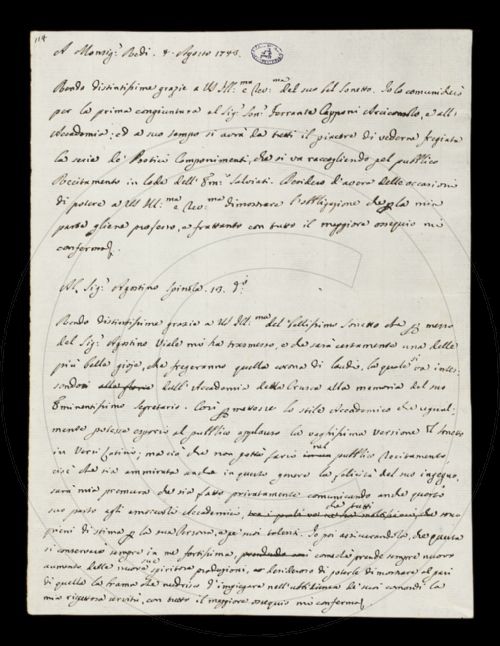 114
A Monsig.r Redi. 8. Agosto 1743.
Rendo distintissime grazie a VS Ill.ma e Rev.ma del suo bel Sonetto. Io lo comunicherò
per la prima congiuntura al Sig.r Sen.r Ferrante Capponi Arciconsolo, e all'
Accademia; ed a suo tempo si avrà da tutti il piacere di vederne fregiata
la serie de' Poetici Componimenti, che si va raccogliendo pel pubblico
Recitamento in lode dell'Em.o Salviati. Desidero d'avere delle occasioni
di potere a VS Ill.ma e Rev.ma dimostrare l'obbligazione che la mia
parte gliene professo, e frattanto con tutto il maggiore ossequio mi
confermo
Al Sig.r Agostino Spinola. 13. d.o
Rendo distintissime grazie a VS Ill.ma del bellissimo Sonetto che per mezzo
del Sig.r Agostino Viale mi ha trasmesso, e che sarà certamente una delle
più belle gioje, che fregeranno quella corona di laudi, la quale si va intes-
sendo alla gloria dall'Accademia della Crusca alla memoria del suo
Eminentissimo Segretario. Così permettesse lo stile Accademico che ugual-
mente potesse esporsi al pubblico applauso la vaghissima versione del Sonetto
in Versi Latini; ma ciò che non potrà farsi nel pubblico Recitamento,
cioè che sia ammirata anche in questo genere la felicità del suo ingegno,
sarà mia premura che sia fatto privatamente comunicando anche questo
suo parto agli amici Accademici, che tutti
pieni di stima per la sua Persona, e pe' suoi talenti. Io poi assicurandola, che questa
si conserverà sempre in me fortissima, come la prende sempre nuovo
aumento dalle nuove sue spiritose produzioni, e desideroso di poterle dimostrare al pari
di quella la brama che nudrisco d'impiegare nell'ubbidienza de' suoi comandi la
mia rispettosa servitù, con tutto il maggiore ossequio mi confermo